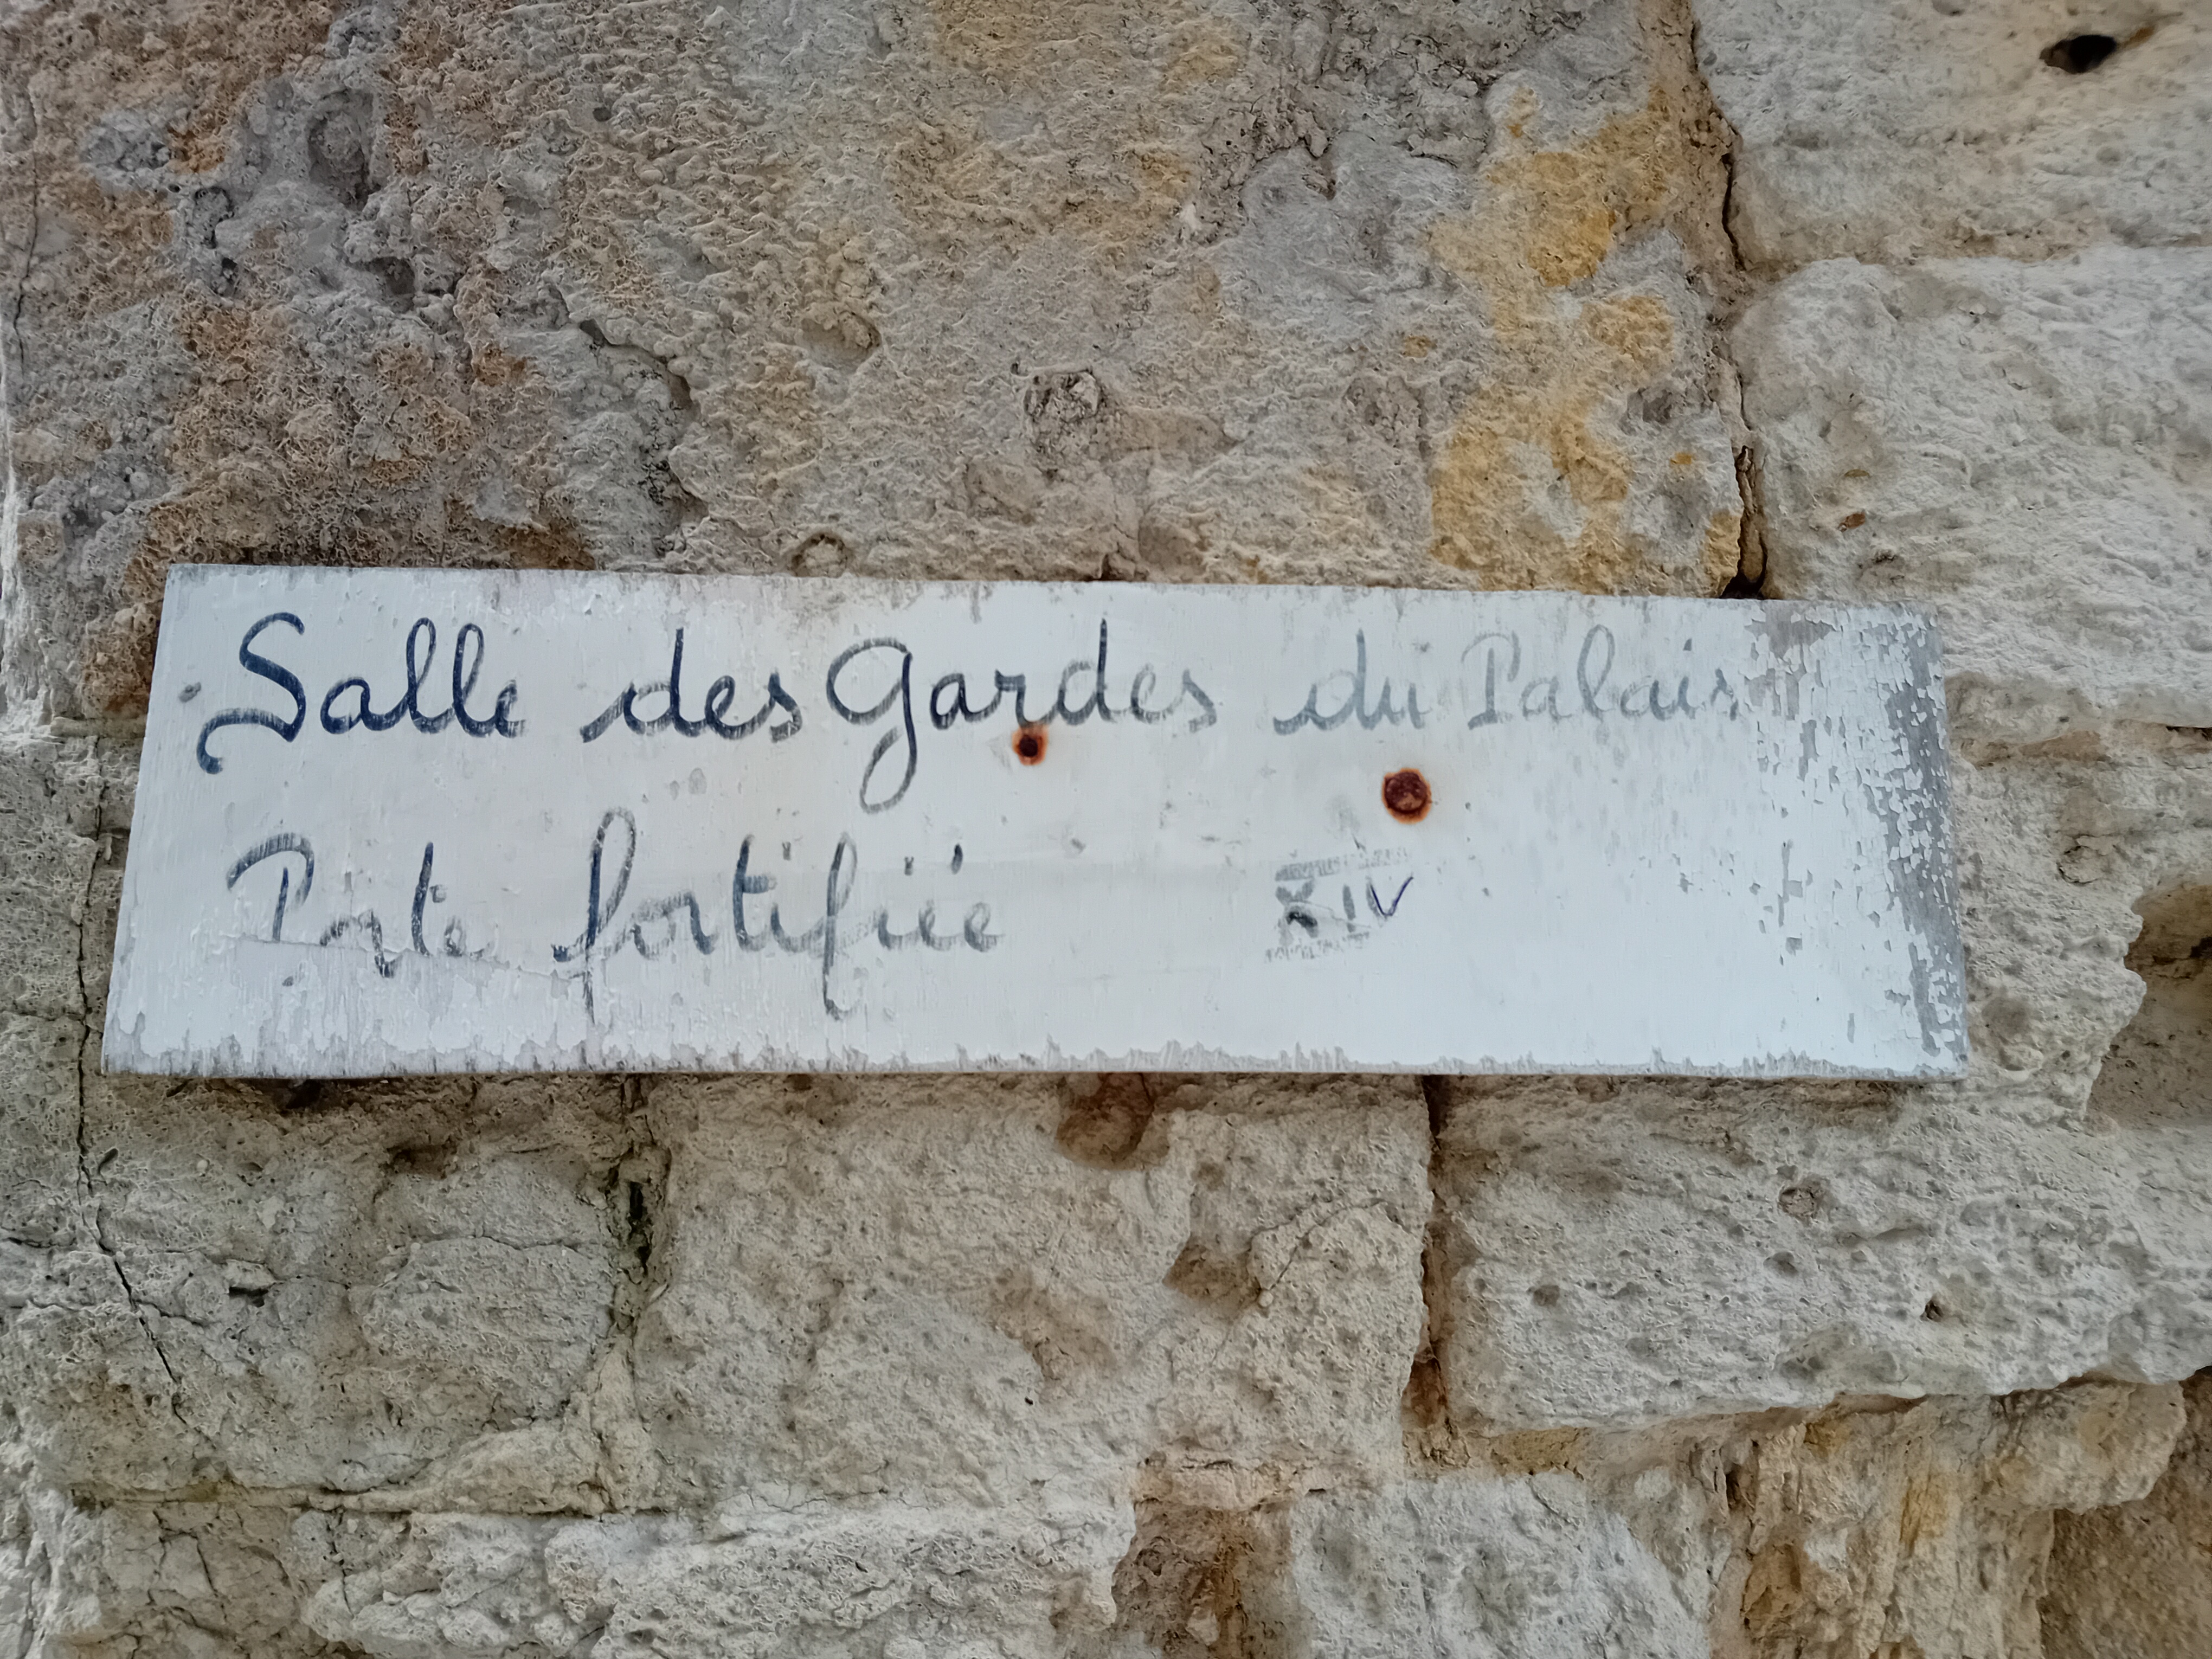 Salle des Gardes du Palais
Porte fortifiée XIV